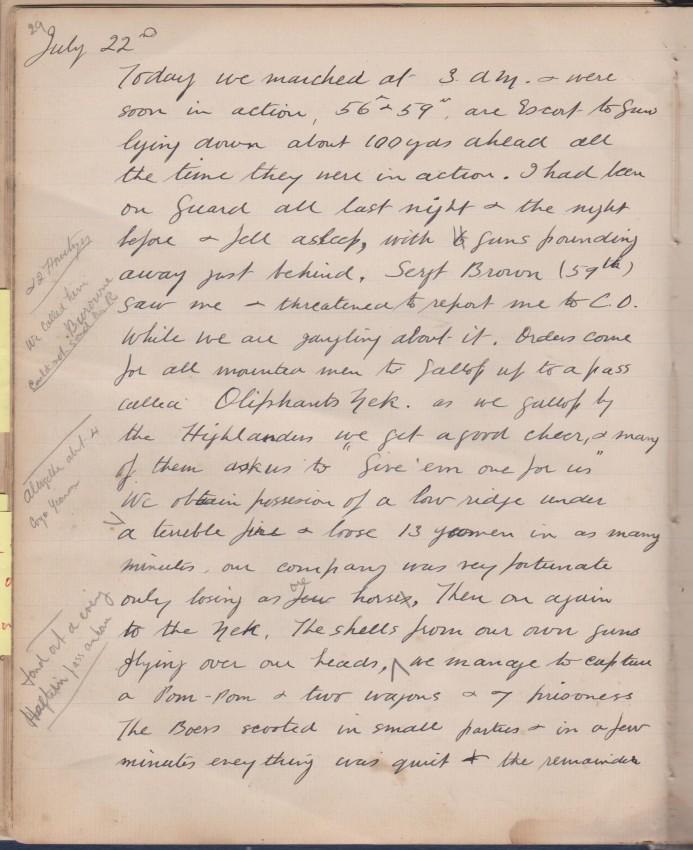 29
July 22nd
Today we marched at 3. a m. & were
soon in action, 56th & 59th, are Escort to Guns
lying down about 100yds ahead all
the time they were in action. I had been
on Guard all last night & the night
before & fell asleep, with 6 guns pounding
away just behind. Sergt Brown (59th)
saw me & threatened to report me to C.O.
While we are jangling about it. Orders come
for all mounted men to Gallop up to a pass
called Oliphants Nek. as we gallop by
the Highlanders we get a good cheer, & many
of them ask us to "Give 'em one for us"
We obtain possesion of a low ridge under
a terrible fire & loose 13 yeomen in as many
minutes, our company was very fortunate
only losing as one few horses, Then on again
to the Nek. The shells from our own guns
flying over our heads, we manage to capture
a Pom-Pom & two wagons & 7 prisoners
The Boers scooted in small parties & in a few
minutes everything was quiet & the remainder
& 2 Howitzers
We called him
Burowne
could not sound R
Altogether abt. 4
Coys Yeomen